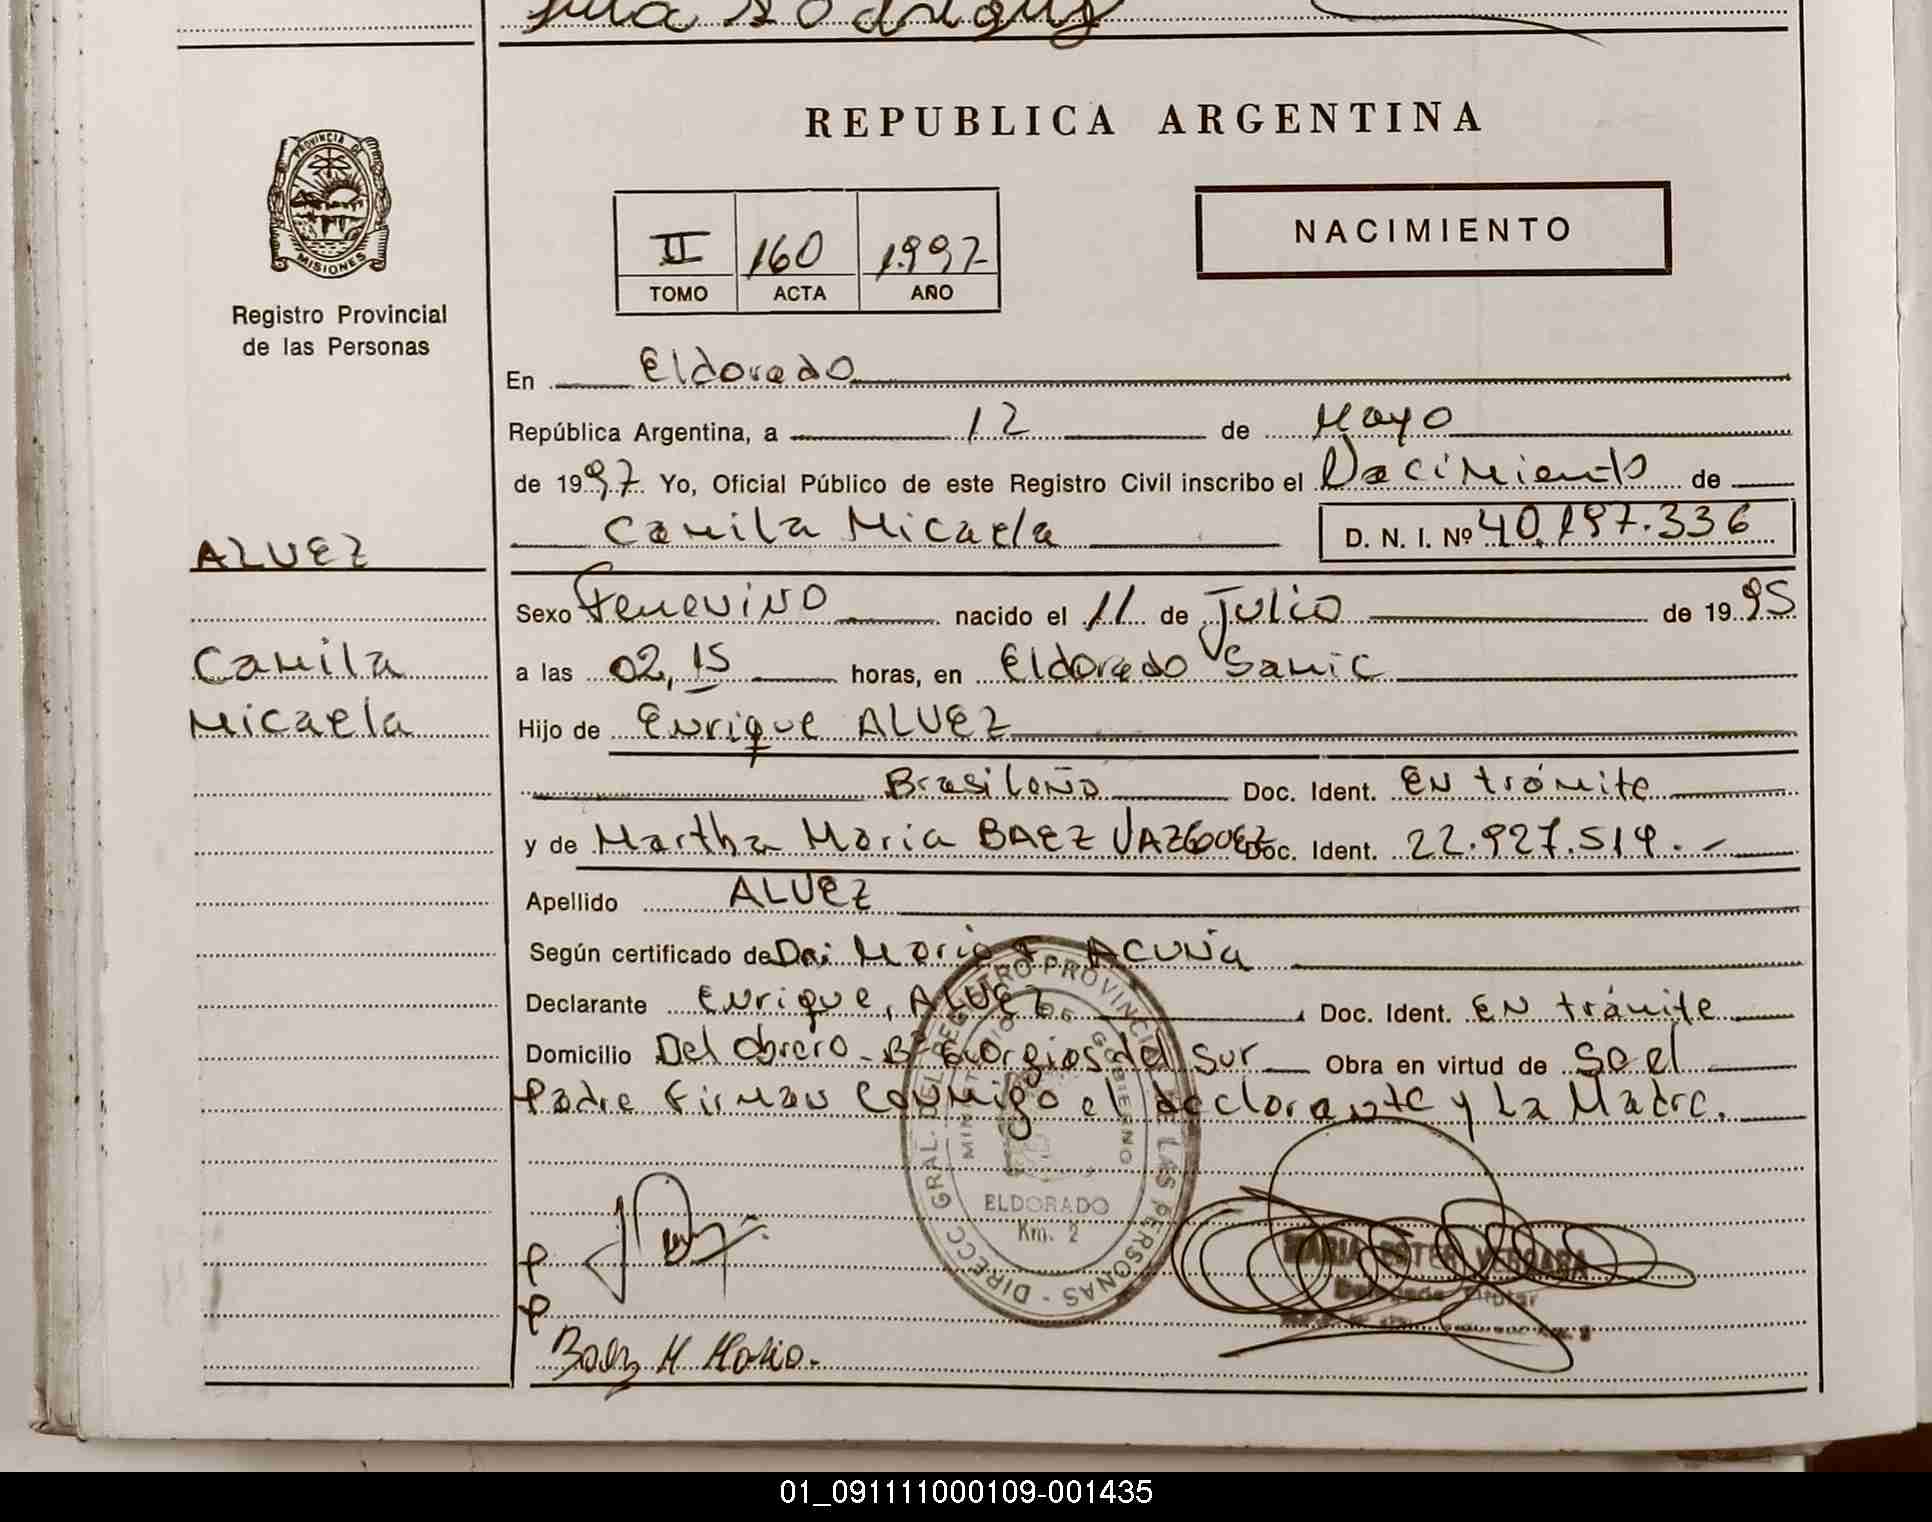 REPUBLICA ARGENTINA
PROVINCIA DE
MISIONES
Registro Provincial
de las Personas
II 160 1997
TOMO ACTA AÑO
NACIMIENTO
En Eldorado
República Argentina, a 12 de Mayo
de 1997 Yo, Oficial Público de este Registro Civil inscribo el Nacimiento de
Camila Micaela D. N. I. Nº 40.197.336
ALVEZ
Camila
Micaela
Sexo Femenino nacido el 11 de Julio de 1995
a las 02,15 horas, en Eldorado Samic
Hijo de Enrique ALVEZ
Brasileño Doc. Ident. EN trámite
y de Martha Maria BAEZ VAZQUEZ Doc. Ident. 22.927.519.-
Apellido ALVEZ
Según certificado de Dr. Mario ACUÑA
Declarante Enrique, ALVEZ Doc. Ident. EN trámite
Domicilio Del Obrero - Bº del Sur Obra en virtud de Se el
Padre Firman Conmigo el declarante y La Madre.
DIRECC GRAL. DEL REGISTRO PROVINCIAL DE LAS PERSONAS -
MINISTERIO DE GOBIERNO
ELDORADO
Km. 2
MARIA ESTER VERGARA
Delegada Titular
Baez M Maria.
01_091111000109-001435